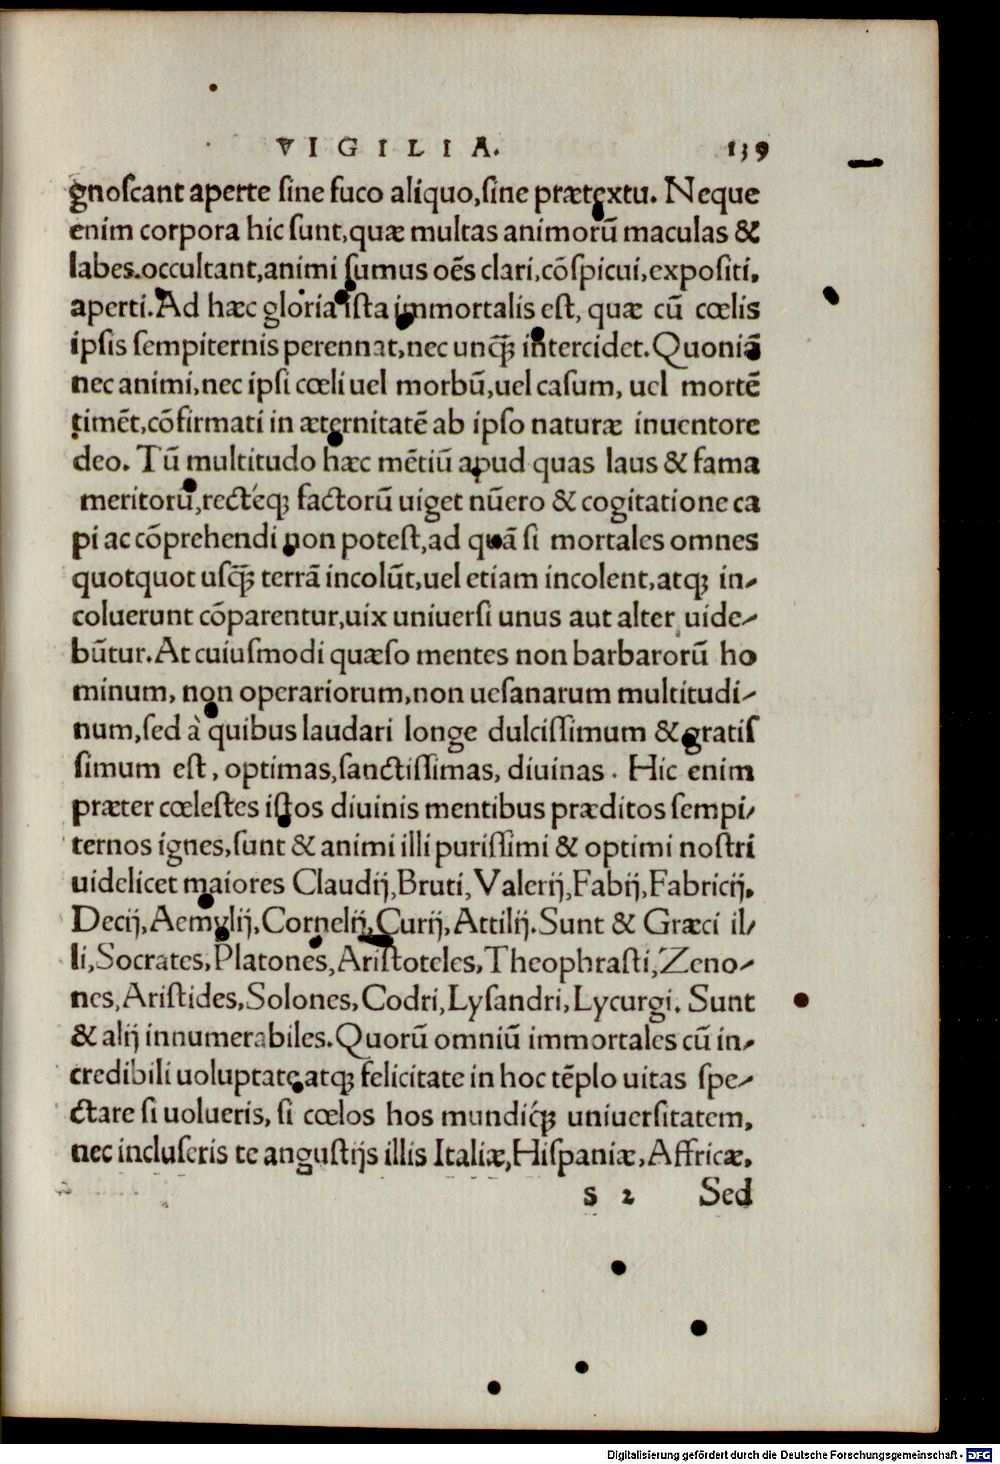 VIGILIA. 139
gnoscant aperte sine fuco aliquo,sine prætextu. Neque
enim corpora hic sunt,quæ multas animorũ maculas &
labes.occultant,animi sumus oẽs clari,cõspicui,expositi,
aperti.Ad hæc gloria ista immortalis est, quæ cũ cœlis
ipsis sempiternis perennat,nec unq̃ꝫ intercidet.Quoniã
nec animi,nec ipsi cœli uel morbũ,uel casum, uel mortẽ
timẽt,cõfirmati in æternitatẽ ab ipso naturæ inuentore
deo. Tũ multitudo hæc mẽtiũ apud quas laus & fama
meritorũ,recteq́ꝫ factorũ uiget nũero & cogitatione ca
pi ac cõprehendi non potest,ad quã si mortales omnes
quotquot usq̃ꝫ terrã incolũt,uel etiam incolent,atqꝫ in-
coluerunt cõparentur,uix uniuersi unus aut alter uide-
bũtur.At cuiusmodi quæso mentes non barbarorũ ho
minum, non operariorum,non uesanarum multitudi-
num,sed à quibus laudari longe dulcissimum & gratis
simum est, optimas,sanctissimas, diuinas. Hic enim
præter cœlestes istos diuinis mentibus præditos sempi-
ternos ignes,sunt & animi illi purissimi & optimi nostri
uidelicet maiores Claudij,Bruti,Valerij,Fabij,Fabricij.
Decij,Aemylij,Cornelij,Curij,Attilij.Sunt & Græci il-
li,Socrates,Platones,Aristoteles,Theophrasti,Zeno-
nes,Aristides,Solones,Codri,Lysandri,Lycurgi. Sunt
& alij innumerabiles.Quorũ omniũ immortales cũ in-
credibili uoluptate,atqꝫ felicitate in hoc tẽplo uitas spe-
ctare si uolueris, si cœlos hos mundiq́ꝫ uniuersitatem,
nec incluseris te angustijs illis Italiæ,Hispaniæ,Affricæ.
s 2 Sed
Digitalisierung gefördert durch die Deutsche Forschungsgemeinschaft - DFG